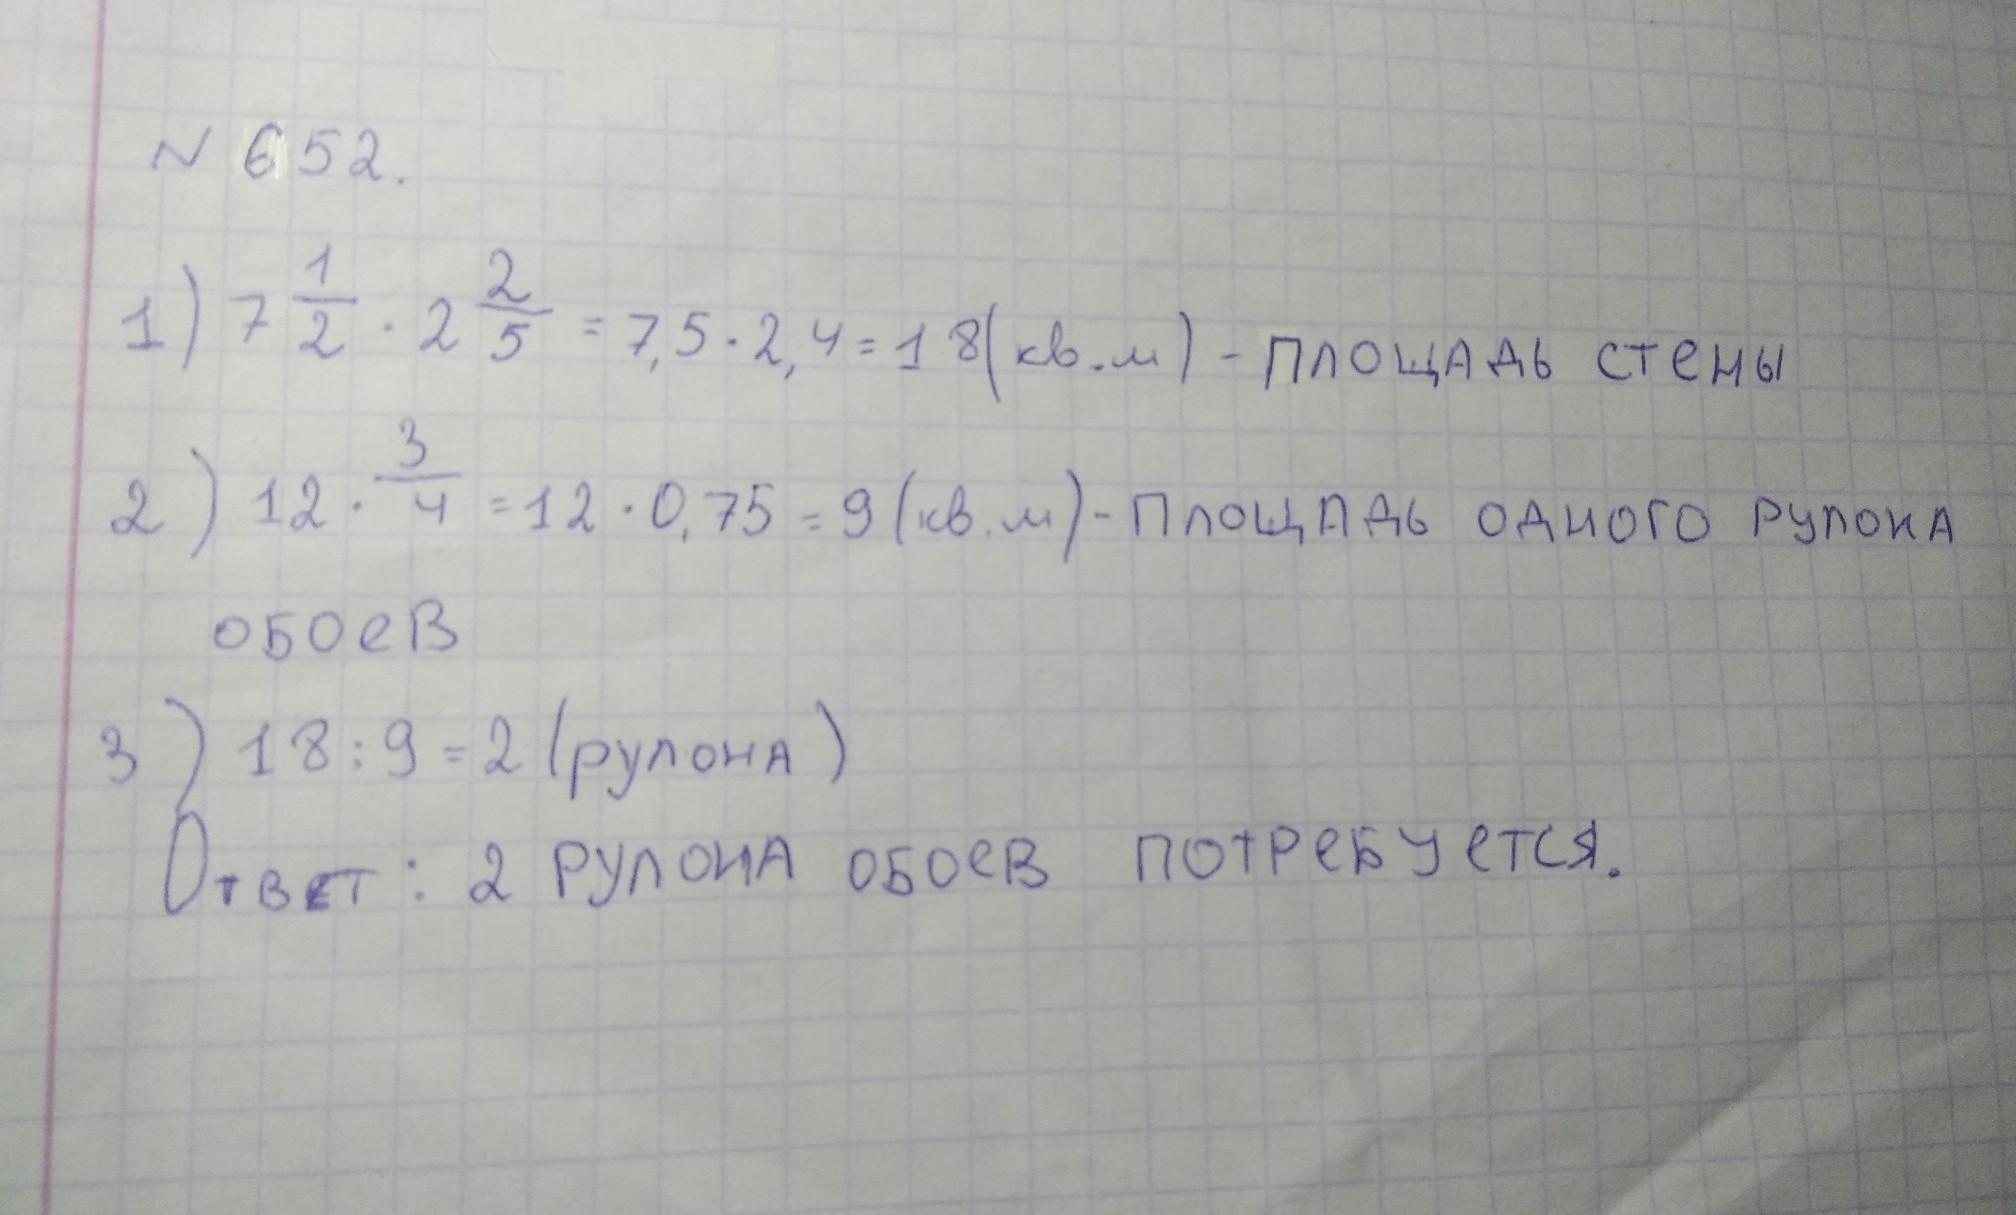 N 652.
1) 7 1/2 · 2 2/5 = 7,5 · 2,4 = 18 (кв.м) - площадь стены
2) 12 · 3/4 = 12 · 0,75 = 9 (кв.м) - площадь одного рулона
обоев
3) 18 : 9 = 2 (рулона)
Ответ: 2 рулона обоев потребуется.